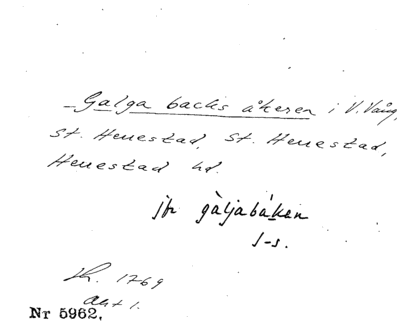 Galga backs åkeren i V. Vång,
St. Herrestad, St. Herrestad,
Herrestad hd.
jfr gàljabákan
s-s.
1769
akt 1.
Nr 5962.